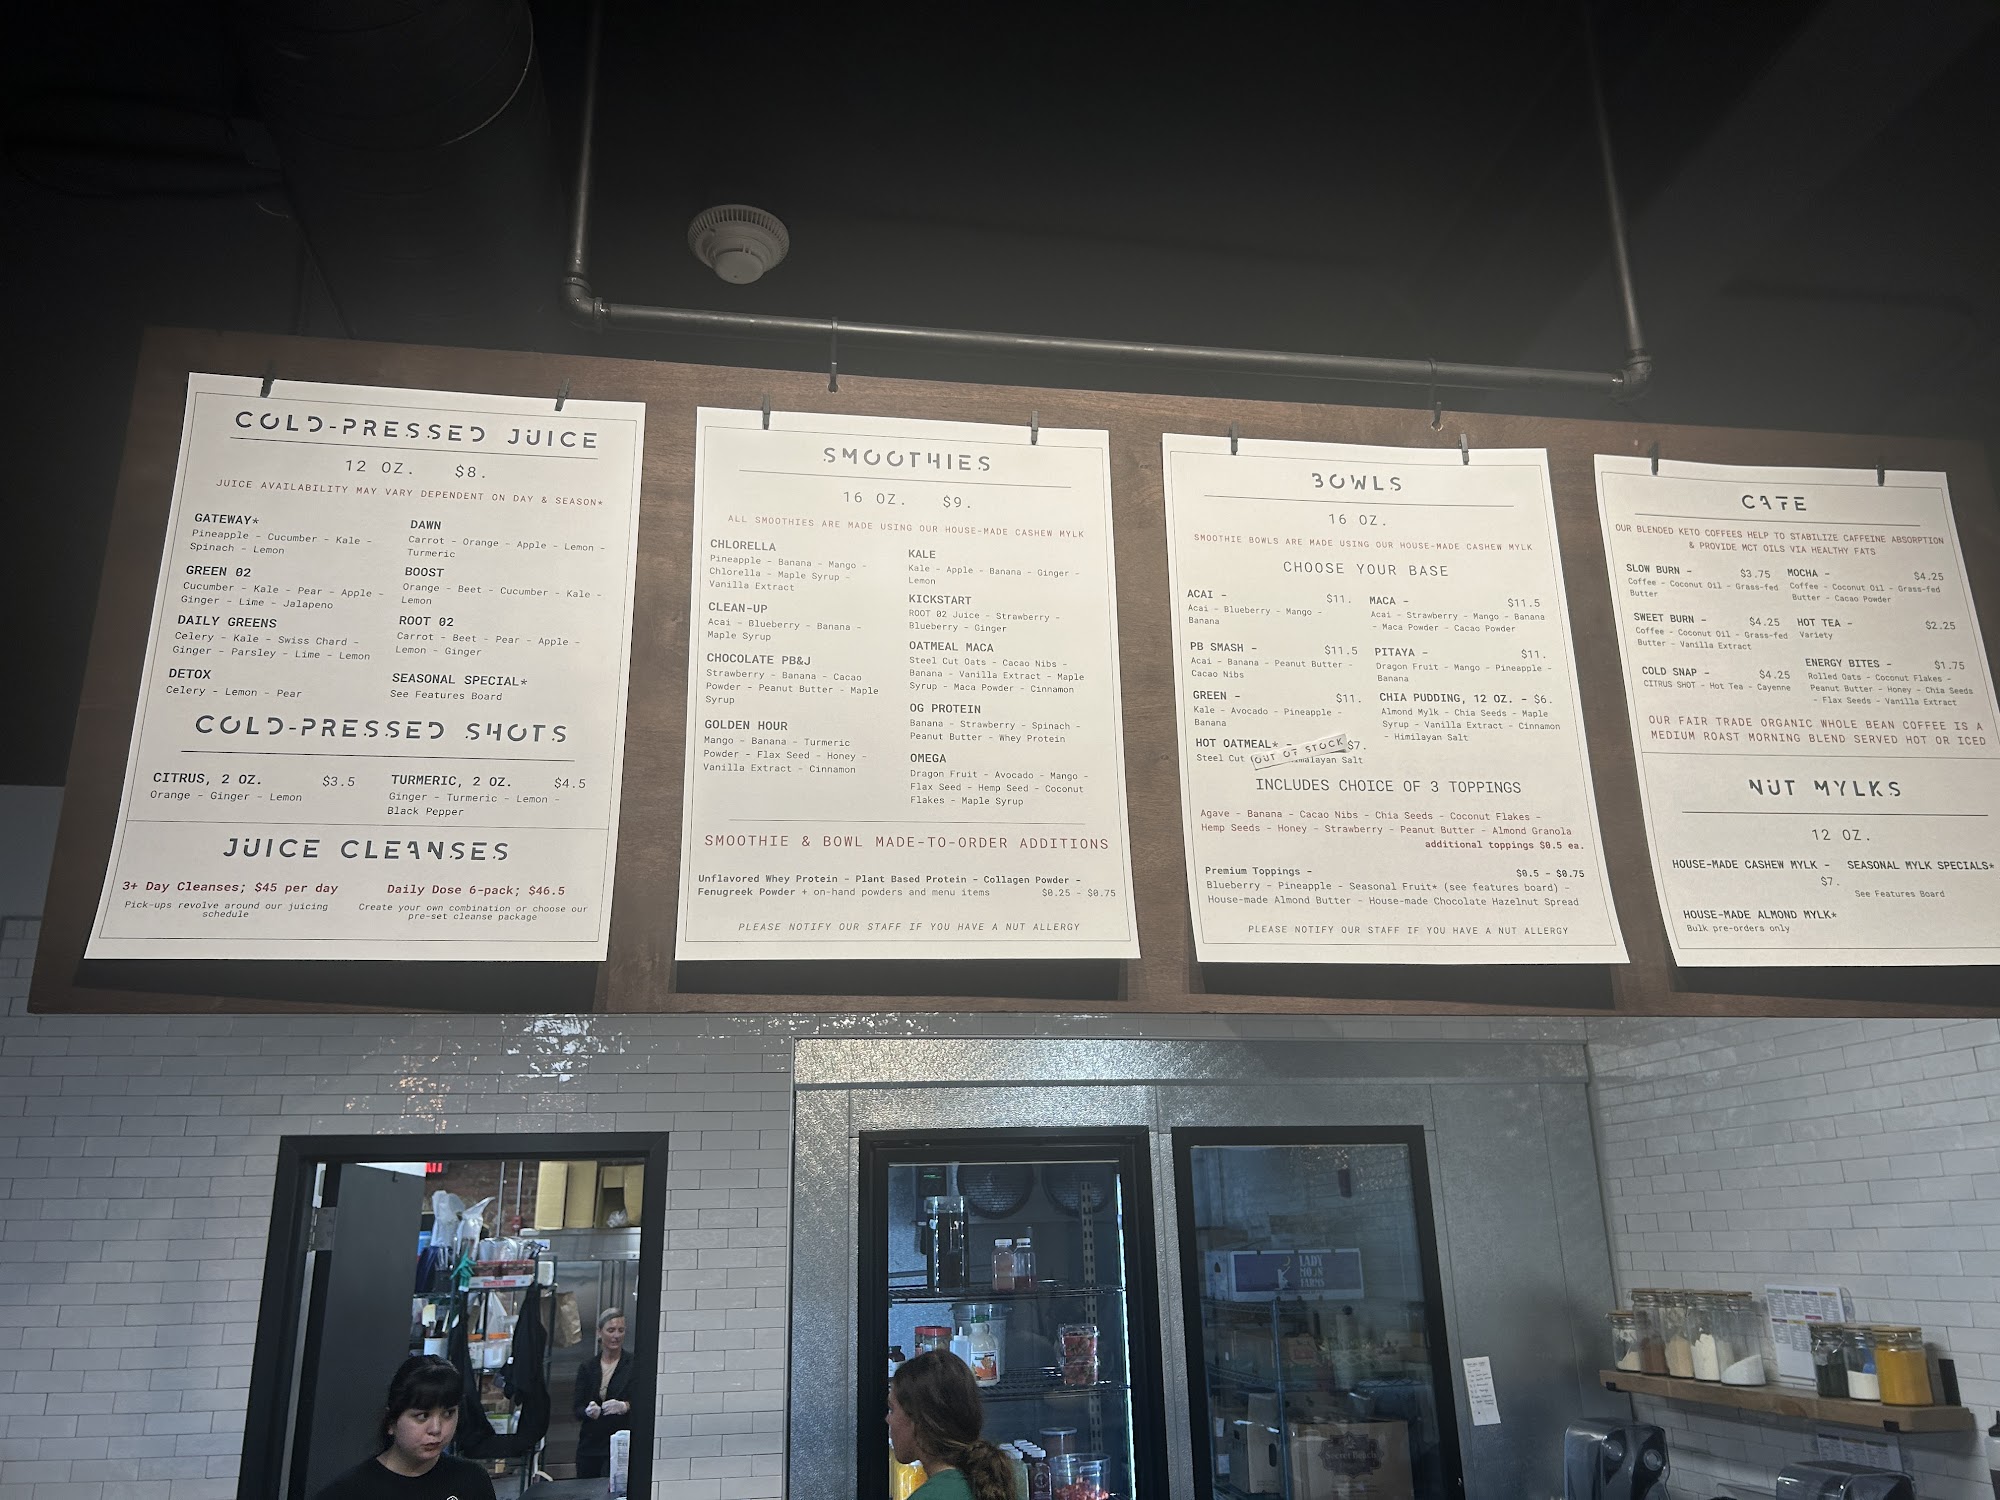 COLD-PRESSED JUICE
12 OZ. $8.
JUICE AVAILABILITY MAY VARY DEPENDENT ON DAY & SEASON*
GATEWAY*
Pineapple - Cucumber - Kale -
Spinach - Lemon
GREEN 02
Cucumber - Kale - Pear - Apple -
Ginger - Lime - Jalapeno
DAILY GREENS
Celery - Kale - Swiss Chard -
Ginger - Parsley - Lime - Lemon
DETOX
Celery - Lemon - Pear
DAWN
Carrot - Orange - Apple - Lemon -
Turmeric
BOOST
Orange - Beet - Cucumber - Kale -
Lemon
ROOT 02
Carrot - Beet - Pear - Apple -
Lemon - Ginger
SEASONAL SPECIAL*
See Features Board
COLD-PRESSED SHOTS
CITRUS, 2 OZ. $3.5
Orange - Ginger - Lemon
TURMERIC, 2 OZ. $4.5
Ginger - Turmeric - Lemon -
Black Pepper
JUICE CLEANSES
3+ Day Cleanses; $45 per day
Pick-ups revolve around our juicing
schedule
Daily Dose 6-pack; $46.5
Create your own combination or choose our
pre-set cleanse package
SMOOTHIES
16 OZ. $9.
ALL SMOOTHIES ARE MADE USING OUR HOUSE-MADE CASHEW MYLK
CHLORELLA
Pineapple - Banana - Mango -
Chlorella - Maple Syrup -
Vanilla Extract
CLEAN-UP
Acai - Blueberry - Banana -
Maple Syrup
CHOCOLATE PB&J
Strawberry - Banana - Cacao
Powder - Peanut Butter - Maple
Syrup
GOLDEN HOUR
Mango - Banana - Turmeric
Powder - Flax Seed - Honey -
Vanilla Extract - Cinnamon
KALE
Kale - Apple - Banana - Ginger -
Lemon
KICKSTART
ROOT 02 Juice - Strawberry -
Blueberry - Ginger
OATMEAL MACA
Steel Cut Oats - Cacao Nibs -
Banana - Vanilla Extract - Maple
Syrup - Maca Powder - Cinnamon
OG PROTEIN
Banana - Strawberry - Spinach -
Peanut Butter - Whey Protein
OMEGA
Dragon Fruit - Avocado - Mango -
Flax Seed - Hemp Seed - Coconut
Flakes - Maple Syrup
SMOOTHIE & BOWL MADE-TO-ORDER ADDITIONS
Unflavored Whey Protein - Plant Based Protein - Collagen Powder -
Fenugreek Powder + on-hand powders and menu items $0.25 - $0.75
PLEASE NOTIFY OUR STAFF IF YOU HAVE A NUT ALLERGY
BOWLS
16 OZ.
SMOOTHIE BOWLS ARE MADE USING OUR HOUSE-MADE CASHEW MYLK
CHOOSE YOUR BASE
ACAI - $11.
Acai - Blueberry - Mango -
Banana
PB SMASH - $11.5
Acai - Banana - Peanut Butter -
Cacao Nibs
GREEN - $11.
Kale - Avocado - Pineapple -
Banana
HOT OATMEAL* - $7.
Steel Cut
OUT OF STOCK
malayan Salt
MACA - $11.5
Acai - Strawberry - Mango - Banana
- Maca Powder - Cacao Powder
PITAYA - $11.
Dragon Fruit - Mango - Pineapple -
Banana
CHIA PUDDING, 12 OZ. - $6.
Almond Mylk - Chia Seeds - Maple
Syrup - Vanilla Extract - Cinnamon
- Himilayan Salt
INCLUDES CHOICE OF 3 TOPPINGS
Agave - Banana - Cacao Nibs - Chia Seeds - Coconut Flakes -
Hemp Seeds - Honey - Strawberry - Peanut Butter - Almond Granola
additional toppings $0.5 ea.
Premium Toppings - $0.5 - $0.75
Blueberry - Pineapple - Seasonal Fruit* (see features board) -
House-made Almond Butter - House-made Chocolate Hazelnut Spread
PLEASE NOTIFY OUR STAFF IF YOU HAVE A NUT ALLERGY
CAFE
OUR BLENDED KETO COFFEES HELP TO STABILIZE CAFFEINE ABSORPTION
& PROVIDE MCT OILS VIA HEALTHY FATS
SLOW BURN - $3.75
Coffee - Coconut Oil - Grass-fed
Butter
SWEET BURN - $4.25
Coffee - Coconut Oil - Grass-fed
Butter - Vanilla Extract
COLD SNAP - $4.25
CITRUS SHOT - Hot Tea - Cayenne
MOCHA - $4.25
Coffee - Coconut Oil - Grass-fed
Butter - Cacao Powder
HOT TEA - $2.25
Variety
ENERGY BITES - $1.75
Rolled Oats - Coconut Flakes -
Peanut Butter - Honey - Chia Seeds
- Flax Seeds - Vanilla Extract
OUR FAIR TRADE ORGANIC WHOLE BEAN COFFEE IS A
MEDIUM ROAST MORNING BLEND SERVED HOT OR ICED
NUT MYLKS
12 OZ.
HOUSE-MADE CASHEW MYLK -
$7.
SEASONAL MYLK SPECIALS*
See Features Board
HOUSE-MADE ALMOND MYLK*
Bulk pre-orders only
LADY
MOON
FARMS